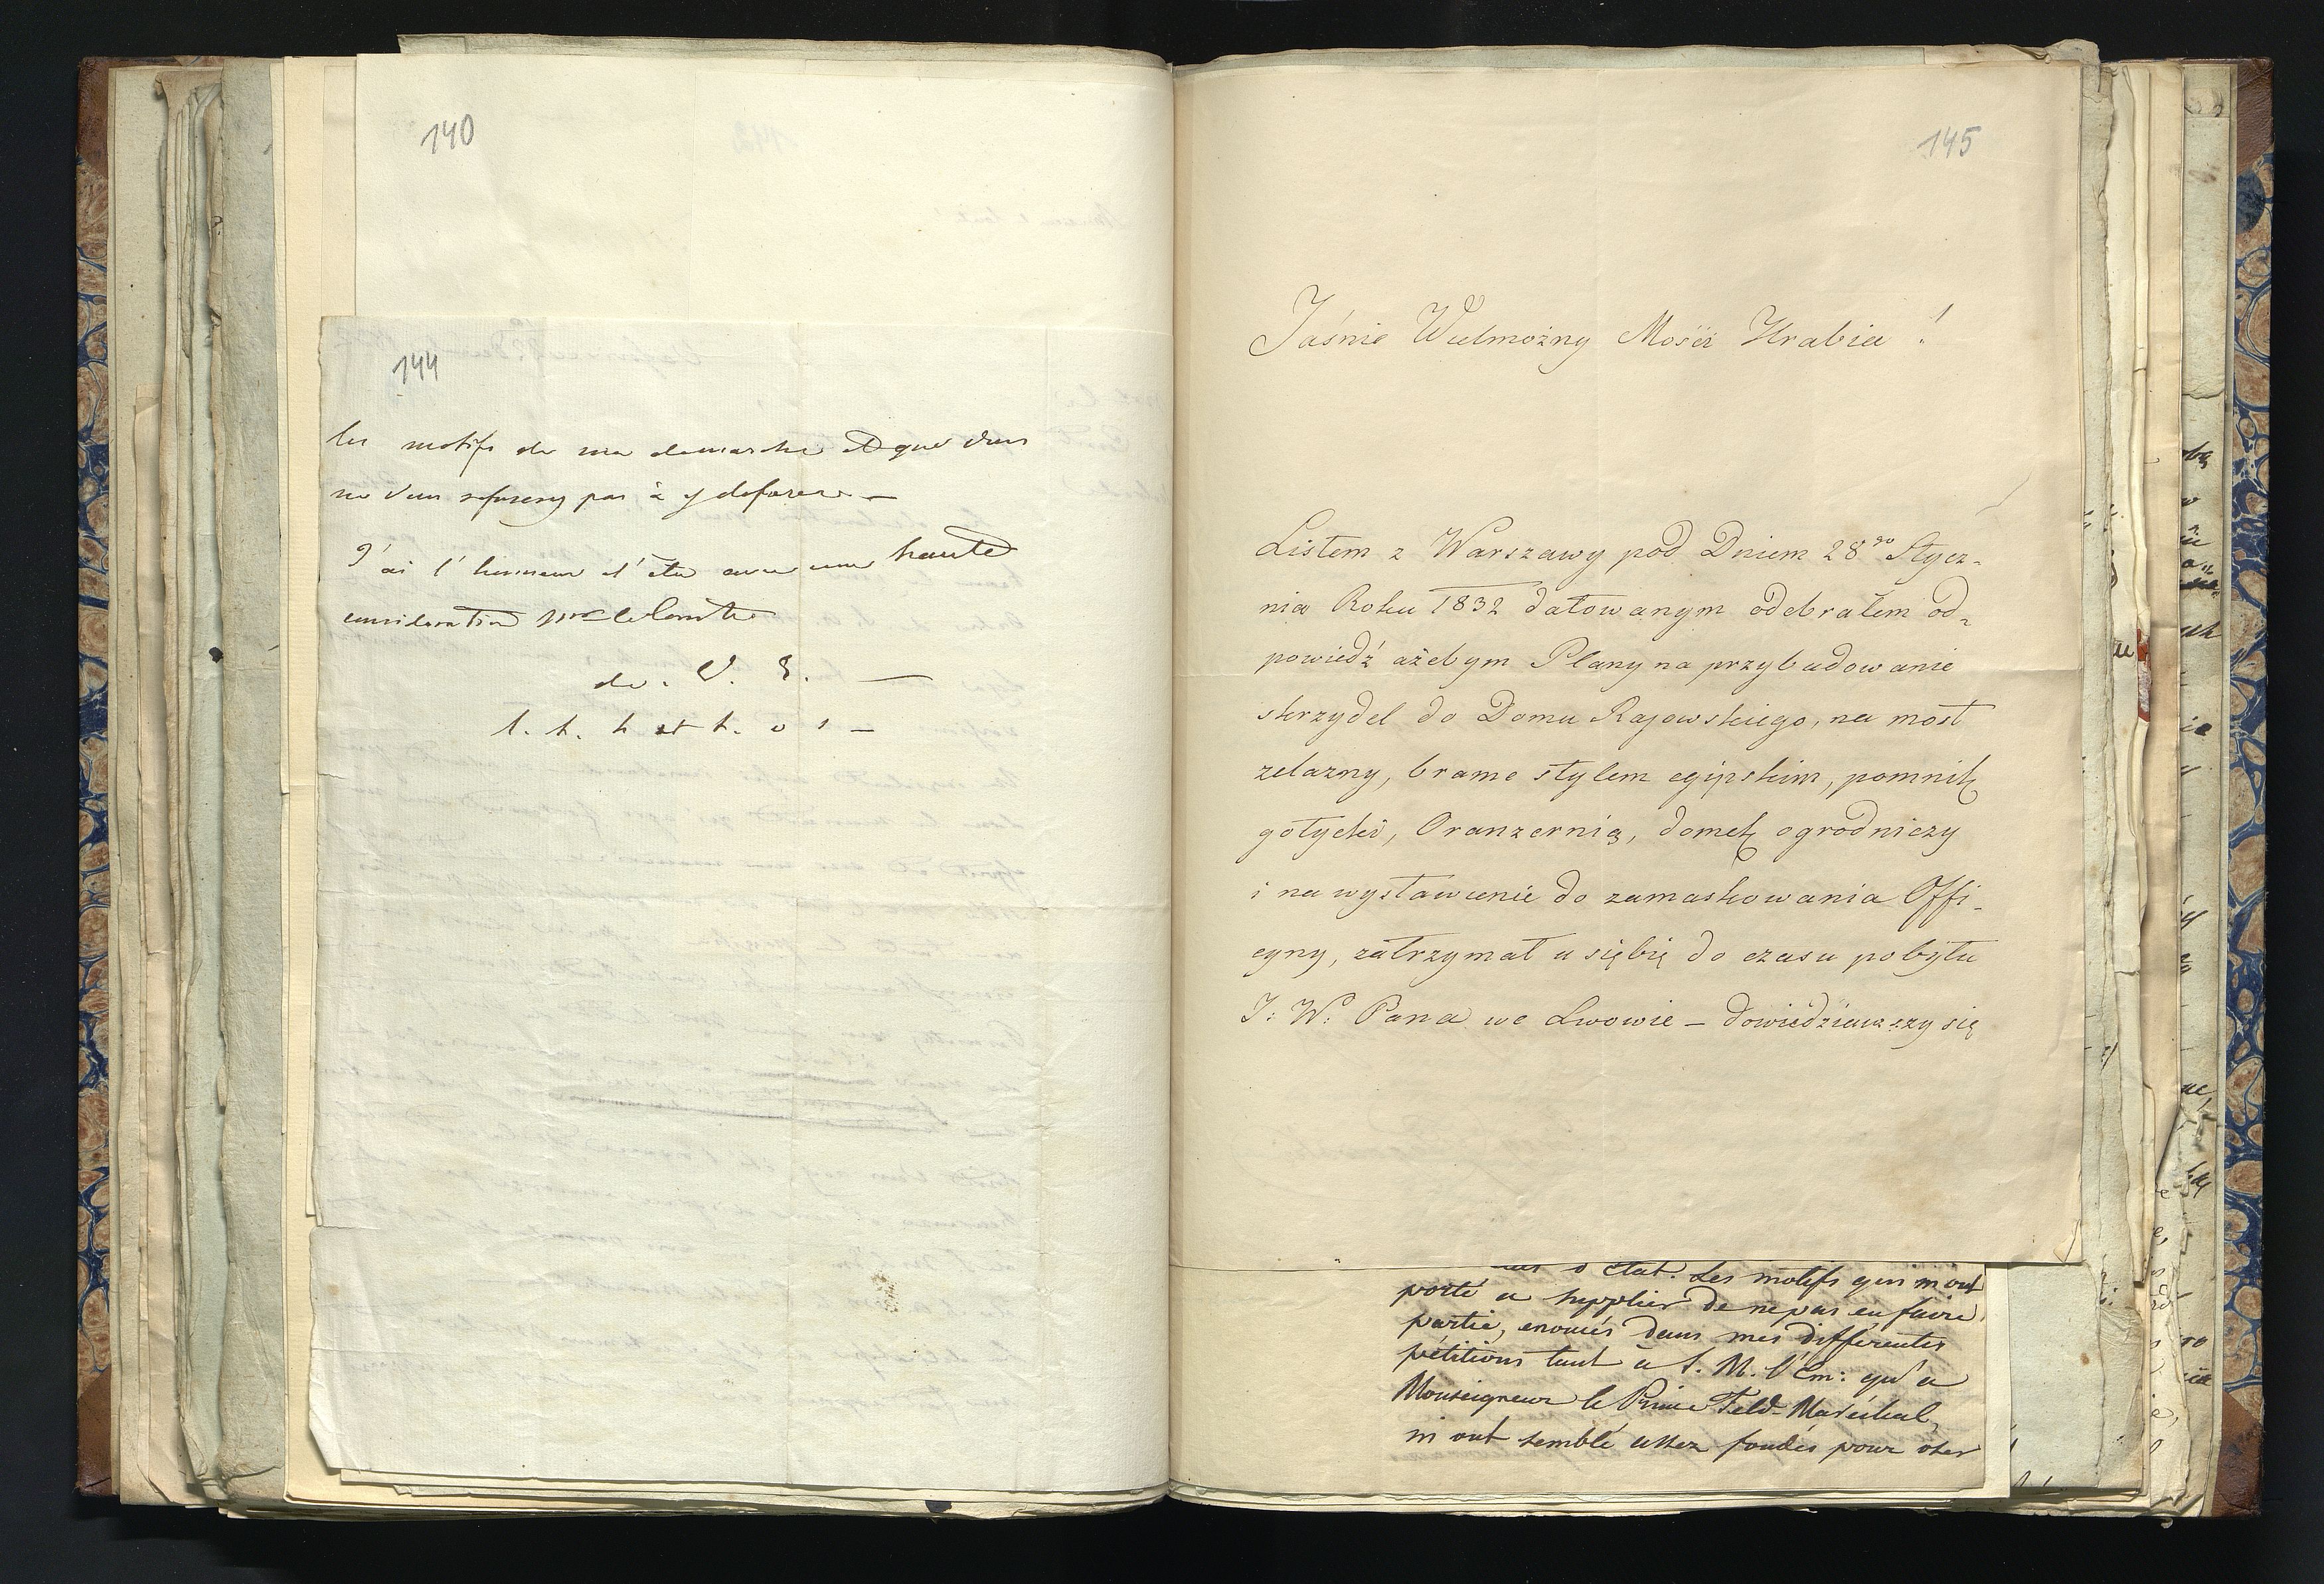 140
144
les motifs de ma demarche et que vous
ne vous refuserez pas à y deferer —
J'ai l'honneur d'être avec une haute
consideration Mr le Comte
de. V. E. —
t. h. et t. o s —
145
Jaśnie Wielmożny Mości Hrabia !
Listem z Warszawy pod Dniem 28go Stycz-
nia Roku 1832 datowanym odebrałem od-
powiedź ażebym Plany na przybudowanie
skrzydeł do Domu Rajowskiego, na most
zelazny, brame stylem egipskim, pomnik
gotycki, Oranzernią, domek ogrodniczy
i na wystawienie do zamaskowania Offi-
cyny, zatrzymał u siębię do czasu pobytu
J: W: Pana we Lwowie – dowiedziawszy się
d'état. Les motifs qui m'ont
porté à supplier de ne pas en faire
partie, enoncés dans mes différentes
pétitions tant à S. M. l'Em: qu'à
Monseigneur le Prince Feld-Maréchal,
m'ont semblé assez fondés pour oser